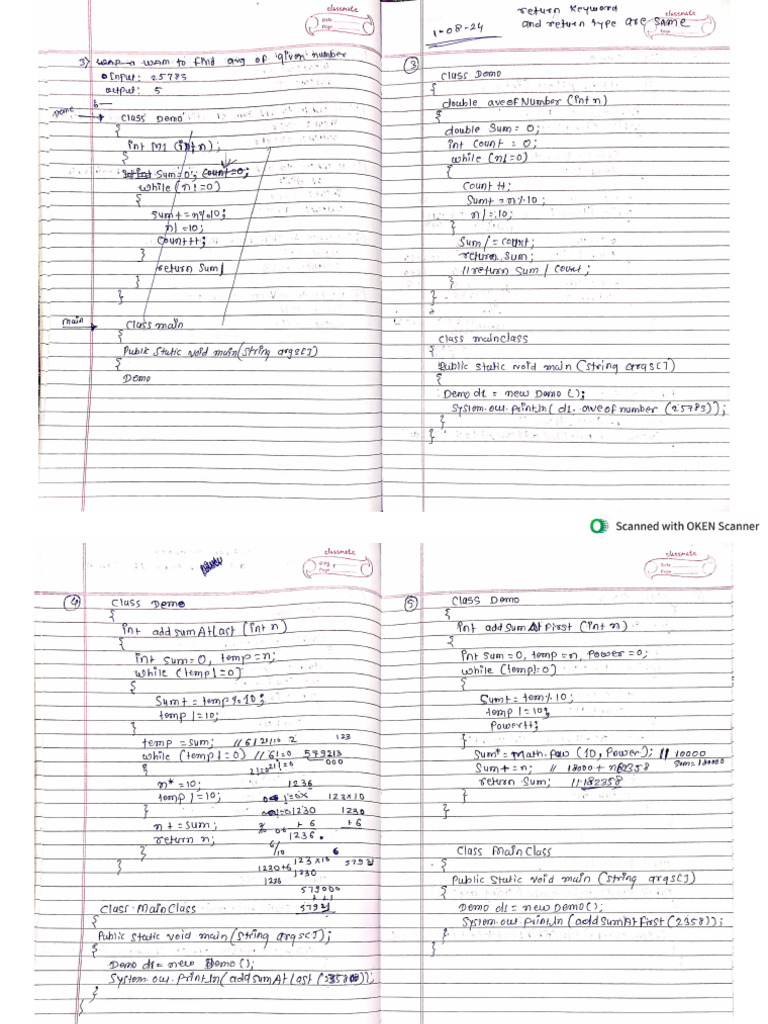 classmate
Date
Page
3) wamp a wam to find avg of given number
Input: 25785
output: 5
Demo
class Demo
{
int m1 (int n);
{
int sum=0; count=0;
while (n!=0)
{
sum+=n%10;
n/=10;
count++;
}
return sum/
}
}
main
Class main
{
Public Static void main(String args[])
{
Demo
return keyword
and return type are same
classmate
Date
Page
1-08-24
3
class Demo
{
double aveofNumber (int n)
{
double Sum = 0;
int count = 0;
while (n!=0)
{
Count ++;
Sum+=n%10;
n/=10;
}
Sum/=count;
return sum;
//return sum / count;
}
}
class mainclass
{
Public static void main (string args[])
{
Demo d1 = new Demo ();
System.out.println( d1. aveofnumber (25783));
}
}
Scanned with OKEN Scanner
classmate
Date
Page
4
class Demo
{
int addsumAtlast (int n)
{
int sum=0, temp=n;
while (temp!=0)
{
Sum+=temp%10;
temp/=10;
}
temp=sum; //6/21/10 2
123
while (temp!=0) //6!=0
579213
000
{
n*=10;
temp/=10;
}
n+=sum;
return n;
}
}
1236
123x10
1230
1230
+6
+6
1236.
6/10
6
123x10
1230+6
1230
1236
579000
Class MainClass
{
Public static void main(string args[]);
{
Demo d1=new Demo();
System.out.println(addsumAtlast(2358));
}
}
classmate
Date
Page
5
class Demo
{
int addsumAtFirst (int n)
{
int sum=0, temp=n, Power=0;
while (temp!=0)
{
Sum+=tem%10;
temp/=10;
Power++;
}
Sum*=Math.Pow (10, Power); // 10000
Sum+=n; // 18000+n=2358
Sum=180000
return Sum; //182358
}
}
Class MainClass
{
Public Static void main (string args[])
{
Demo d1=new Demo();
System.out.println(addsumAtFirst(2358));
}
}